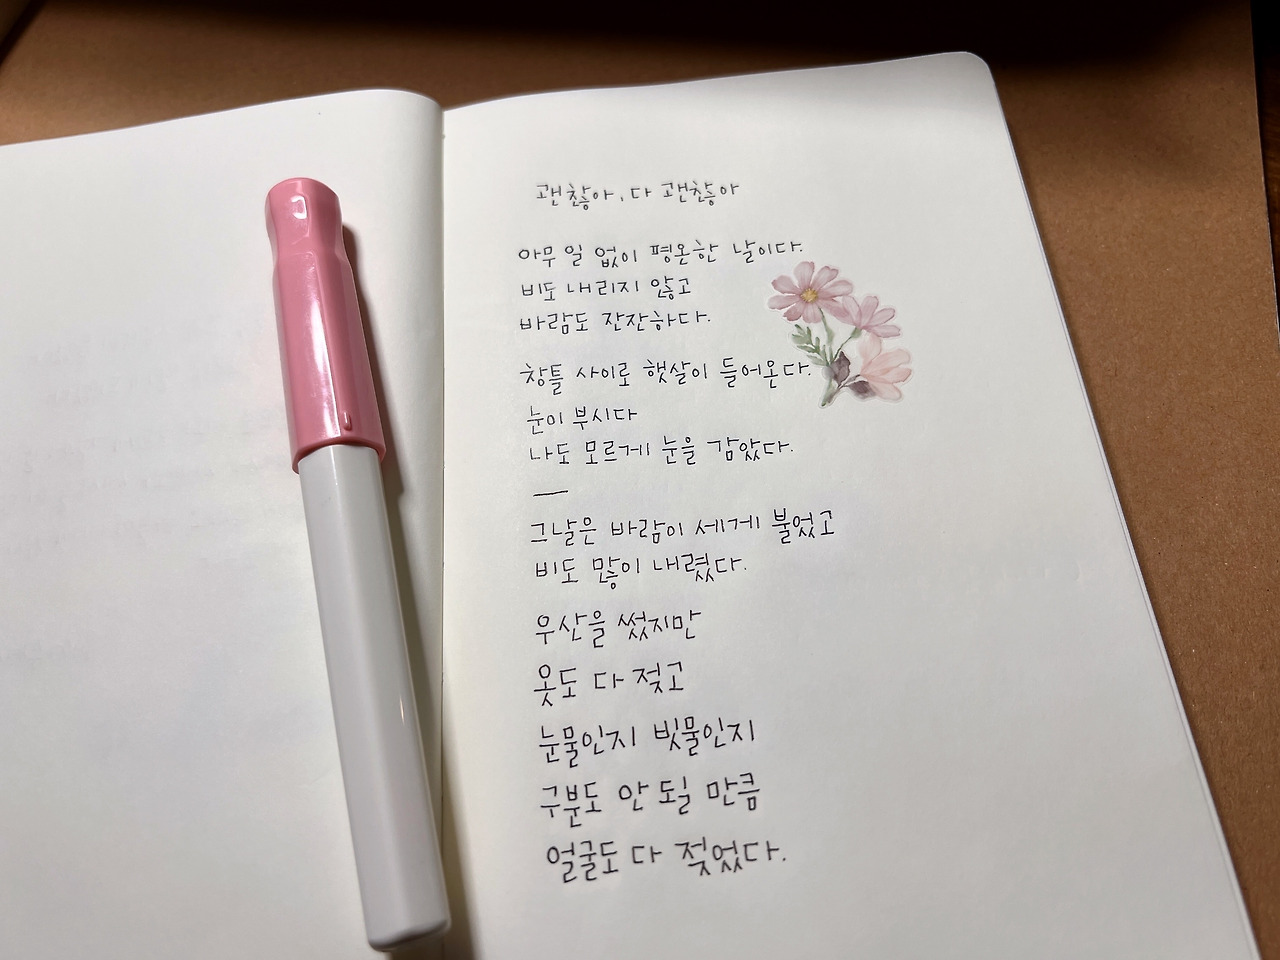 괜찮아, 다 괜찮아
아무 일 없이 평온한 날이다.
비도 내리지 않고
바람도 잔잔하다.
창틀 사이로 햇살이 들어온다.
눈이 부시다
나도 모르게 눈을 감았다.
—
그날은 바람이 세게 불었고
비도 많이 내렸다.
우산을 썼지만
옷도 다 젖고
눈물인지 빗물인지
구분도 안 될 만큼
얼굴도 다 젖었다.